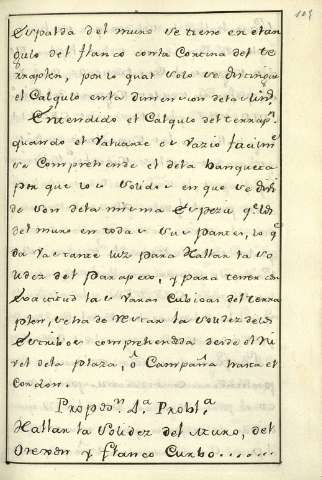 109
Espalda del muro se tiene en el an
gulo del flanco con la Cortina del te
rraplen, por lo qual solo se distingue
el Calgulo en la dimension de la
Entendido el Calgulo del terrapn.
quando el valuarte es vazio facilmte
se Comprehende el dela banqueta
por que los solidos en que se divi
de son dela misma Especie qe. los
del muro en todas sus partes, lo qe
da bastante luz para Hallar la so
lidez del parapeto, y para tener con
Exactitud las varas Cubicas del terra
plen, se ha de restar la solidez delos
Estribos comprehendida desde el ni
vel dela plaza, ó Campaña hasta el
Cordon.
Propon. 4a. Probla.
Hallar la solidez del Muro, del
Orexon y flanco Curbo......